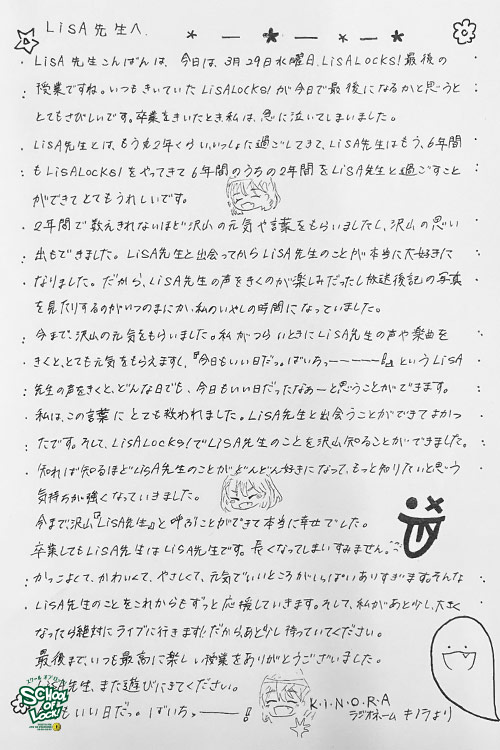 LiSA 先生へ.
LiSA 先生こんばんは、今日は、3月29日水曜日、LiSALOCKS!最後の
授業ですね。いつもきいていたLiSALOCKS!が今日で最後になるかと思うと
とてもさびしいです。卒業をきいたとき私は、急に泣いてしまいました。
LiSA先生とは、もう丸2年くらいいっしょに過ごしてきて、LiSA先生はもう、6年間
もLiSALOCKS!をやってきて6年間のうちの2年間をLiSA先生と過ごすこと
ができてとてもうれしいです。
2年間で数えきれないほど沢山の元気や言葉をもらいましたし、沢山の思い
出もできました。LiSA先生と出会ってからLiSA先生のことが本当に大好きに
なりました。だから、LiSA先生の声をきくのが楽しみだったし放送後記の写真
を見たりするのがいつのまにか、私のいやしの時間になっていました。
今まで、沢山の元気をもらいました。私がつらいときにLiSA先生の声や楽曲を
きくと、とても元気をもらえますし、『今日もいい日だっ。ばいちっーーーー!』というLiSA
先生の声をきくと、どんな日でも、今日もいい日だったなぁーと思うことができます。
私は、この言葉にとても救われました。LiSA先生と出会うことができてよかっ
たです。そして、LiSALOCKS!でLiSA先生のことを沢山知ることができました。
知れば知るほどLiSA先生のことがどんどん好きになって、もっと知りたいと思う
気持ちが強くなっていきました。
今まで沢山『LiSA先生』と呼ぶことができて本当に幸せでした。
卒業してもLiSA先生はLiSA先生です。長くなってしまいすみません。
かっこよくて、かわいくて、やさしくて、元気でいいところがいっぱいありすぎます。そんな
LiSA先生のことをこれからもずっと応援していきます。そして、私があと少し、大きく
なったら絶対にライブに行きます!!だから、あと少し待っていてください。
最後まで、いつも最高に楽しい授業をありがとうございました。
LiSA先生、また遊びにきてください。
もいい日だっ。ばいちっーーー!
K・i・N・O・R・A
ラジオネーム キノラより
スクールオブロック!
SCHOOL
OF
LOCK!